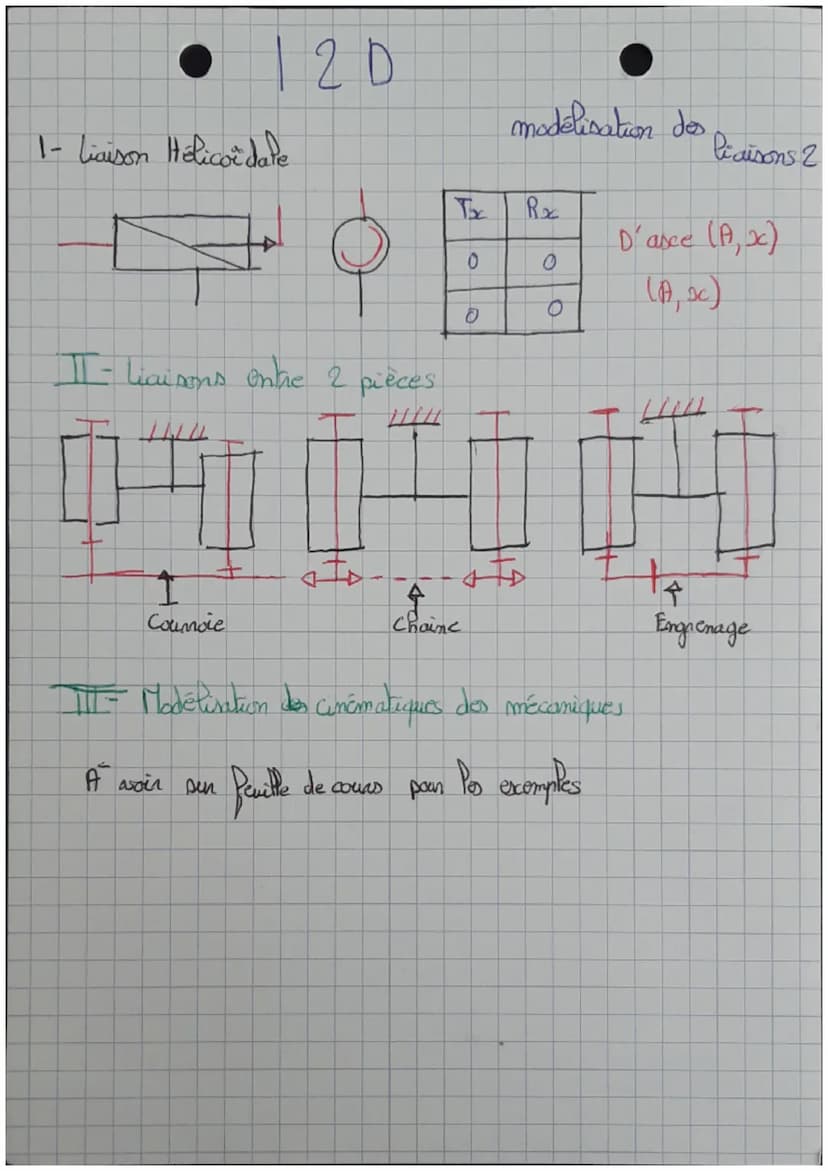 I2D
modélisation des
liaisons 2
I- liaison Hélicoïdale
Tx Rx
0 0
0 0
D'axe (A,x)
(A,x)
II- liaisons entre 2 pièces
Courroie
Chaine
Engrenage
III- Modélisation des cinématiques des mécaniques
A avoir sur feuille de cours pour les exemples